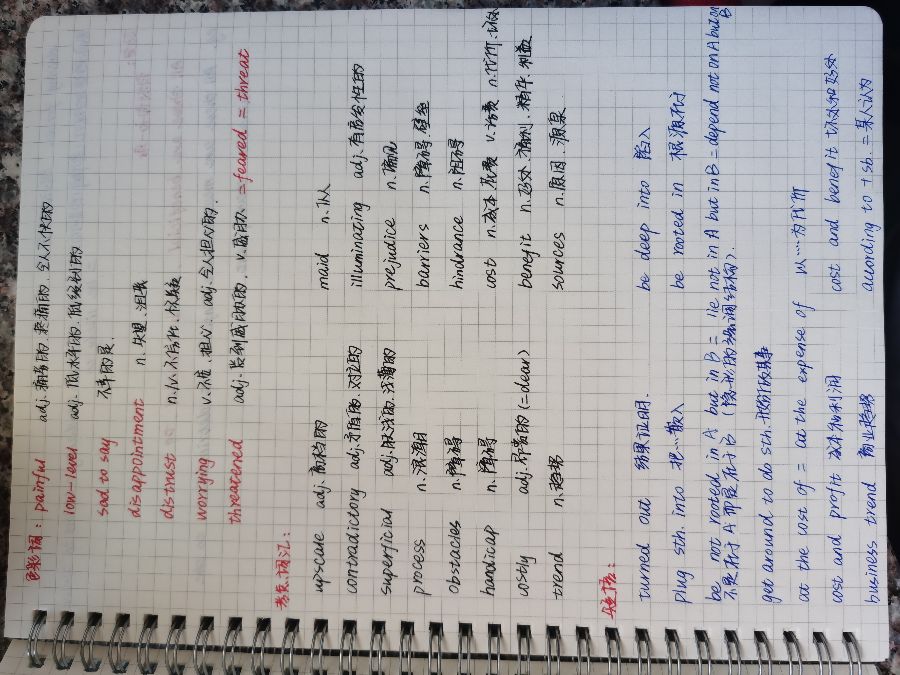 色彩词: painful adj.痛苦的.疼痛的.令人不快的
low-level adj.低水平的.低级别的
sad to say 不幸的是
disappointment n.失望.沮丧
distrust n./v.不信任.怀疑
worrying v.不安.担心 adj.令人担心的.
threatened adj.受到威胁的. v.威胁. =feared = threat
考点词汇:
upscale adj.高档的 maid n.仆人
contradictory adj.矛盾的.对立的 illuminating adj.有启发性的
superficial adj.肤浅的.浅薄的 prejudice n.偏见
process n. barriers n.障碍.壁垒
obstacles n.障碍 hindrance n.阻碍
handicap n.障碍 cost n.成本.花费 v.花费 n.代价.
costly adj.昂贵的(=dear) benefit n.好处.福利. 利益
trend n.趋势 sources n.原因.源泉
短语:
turned out 结果证明. be deep into 陷入
plug sth. into 把…敲入 be rooted in 根源在于
be not rooted in A but in B = lie not in A but in B = depend not on A but on B
不是在于A而是在于B (隐形的强调结构).
get around to do sth.
at the cost of = at the expense of 以…为代价
cost and profit 成本和利润 cost and benefit 坏处和好处
business trend 商业趋势 according to +sb. = 某人认为